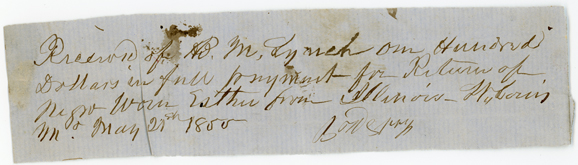 Received of B. M. Lynch One Hundred
Dollars in full payment for Return of
Negro Wom Esther from Illinois St Louis
Mo May 25th 1850